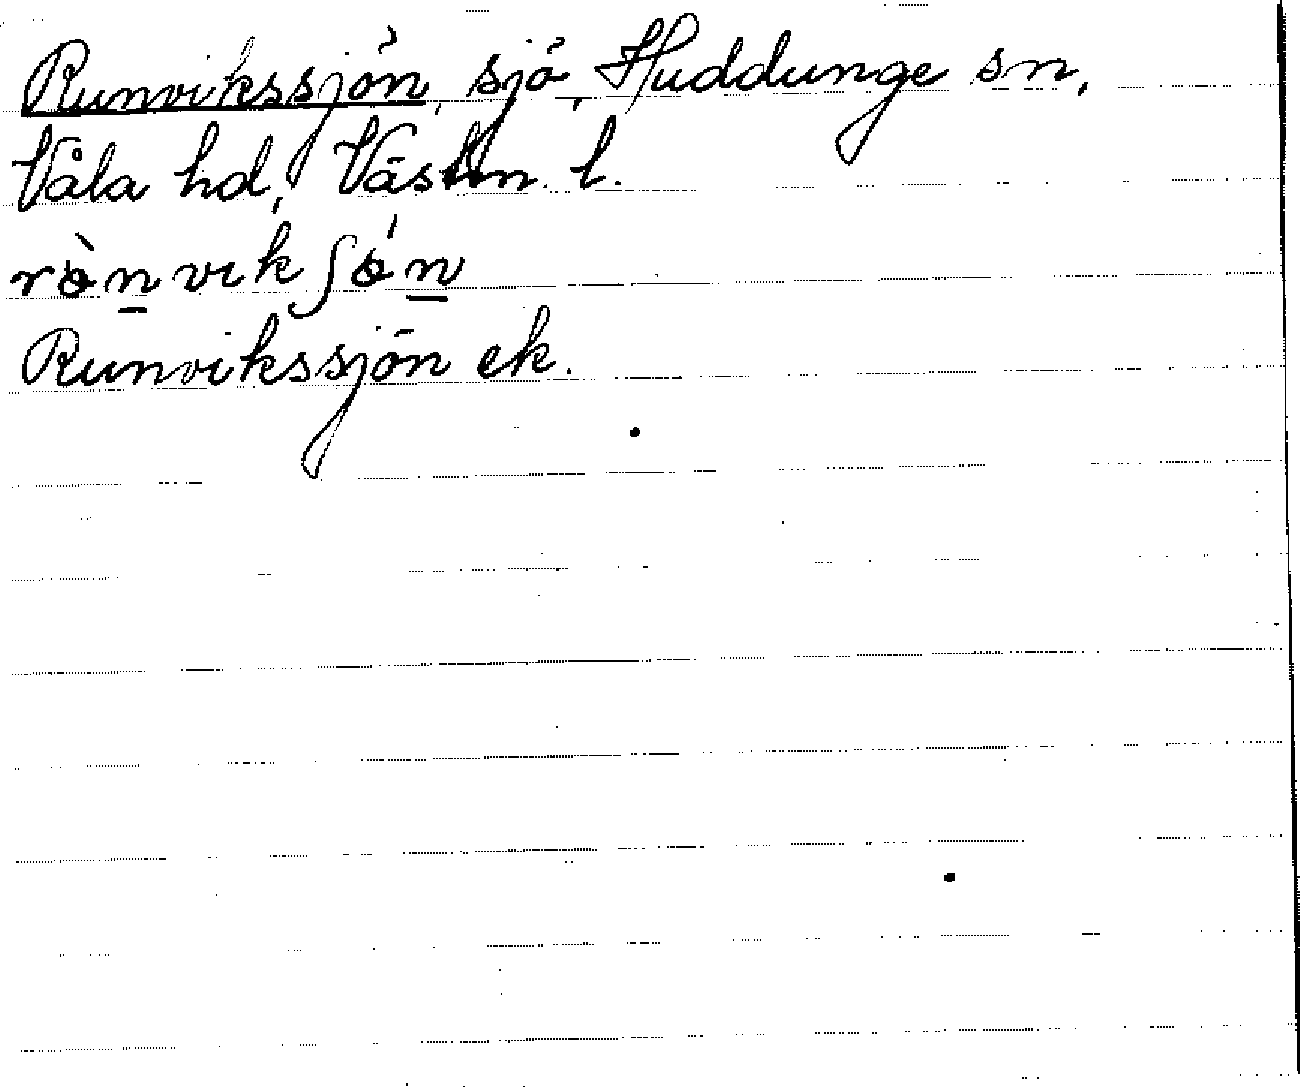 Runvikssjön, sjö, Huddunge sn,
Våla hd, Västm. l.
rònvikʃǿn
Runvikssjön ek.